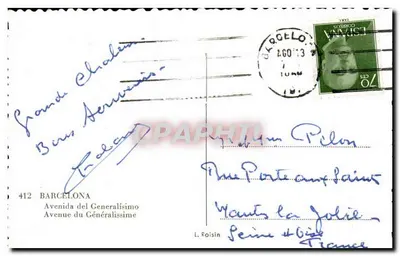 Grande Chaleur
Bons Souvenirs
412 BARCELONA
Avenida del Generalísimo
Avenue du Généralissime
L. Roisin
BARCELONA
ESPAÑA
CORREOS
70
CTS
CPAPHIL
Pilon
Rue Porte aux Saints
Mantes la Jolie
Seine et Oise
France